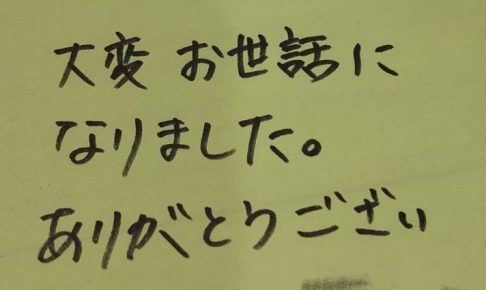 大変 お世話に
なりました。
ありがとうござい